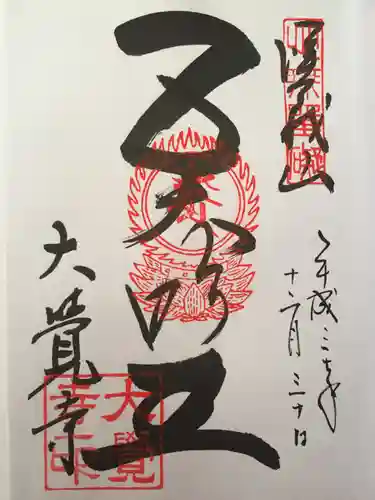 嵯峨山
五大明王
大覺寺
平成三十年
十二月三十日
大覺
寺印